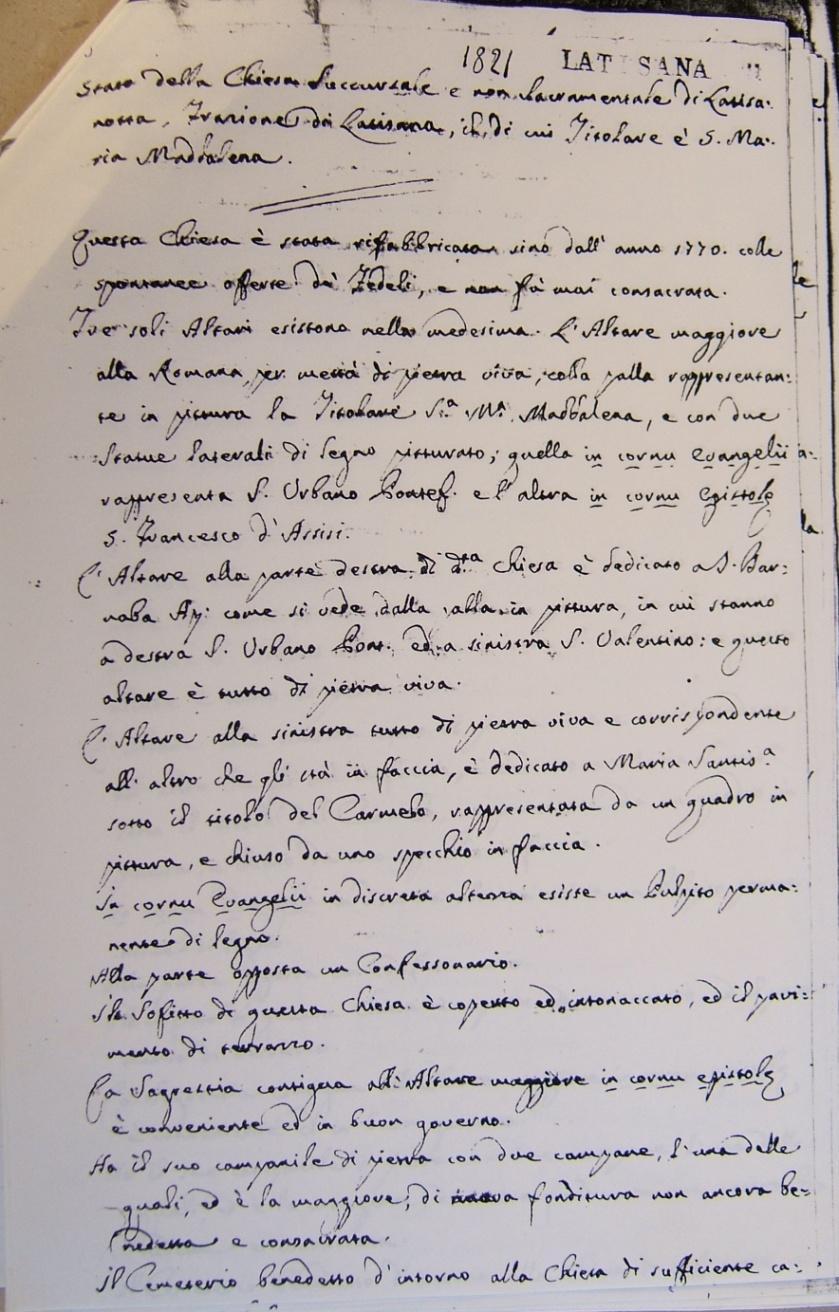 1821 LATISANA
Stato della Chiesa Succursale e non Sacramentale di Latisa:
notta, Frazione di Latisana, il di cui Titolare è S. Ma:
ria Maddalena.
Questa Chiesa è stata riffabbricata sino dall' anno 1770. colle
spontanee offerte de' Fedeli, e non fù mai consacrata.
Tre soli Altari esistono nella medesima. L'Altare maggiore
alla Romana, per mettà di pietra viva, colla palla rappresentan:
te in pittura la Titolare S.ª M.ª Maddalena, e con due
statue laterali di legno pitturato; quella in cornu Evangelii
rappresenta S. Urbano Pontef. e l'altra in cornu Epistolę
S. Francesco d'Assisi.
L' Altare alla parte destra di d.ta Chiesa è dedicato a S. Bar:
naba Ap: come si vede dalla palla in pittura, in cui stanno
a destra S. Urbano Pont. ed a sinistra S. Valentino: e questo
altare è tutto di pietra viva.
L' Altare alla sinistra tutto di pietra viva e corrispondente
all' altro che gli stà in faccia, è dedicato a Maria Santis.ª
sotto il titolo del Carmelo, rappresentata da un quadro in
pittura, e chiuso da uno specchio in faccia.
In cornu Evangelii in discreta altezza esiste un Pulpito perma:
nente di legno.
Alla parte opposta un Confessonario.
Il Sofitto di questa Chiesa è coperto ed intonaccato, ed il pavi:
mento di terrazzo.
La Sagrestia contigua all' Altare maggiore in cornu epistolę
è conveniente ed in buon governo.
Ha il suo campanile di pietra con due campane, l'una delle
quali, ed è la maggiore, di nuova fonditura non ancora be:
nedetta e consacrata.
Il Cemeterio benedetto d'intorno alla Chiesa di sufficiente ca: